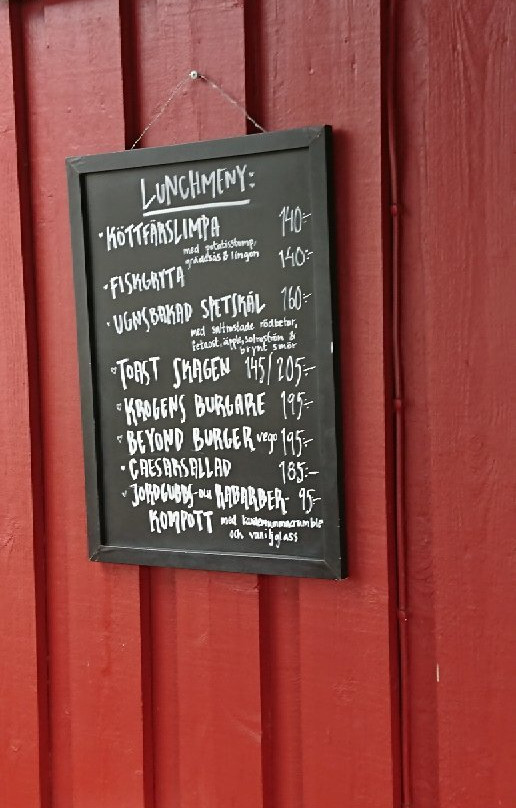 LUNCHMENY:
KÖTTFÄRSLIMPA 140:-
med potatisstomp,
gräddsås & lingon
FISKGRYTA 140:-
UGNSBAKAD SPETSKÅL 160:-
med saltrostade rödbetor,
fetaost, äpple, solrosfrön &
brynt smör
TOAST SKAGEN 145/205:-
KROGENS BURGARE 195:-
BEYOND BURGER vego 195:-
CAESARSALLAD 185:-
JORDGUBBS- och RABARBER- 95:-
KOMPOTT med kardemummacrumble
och vaniljglass